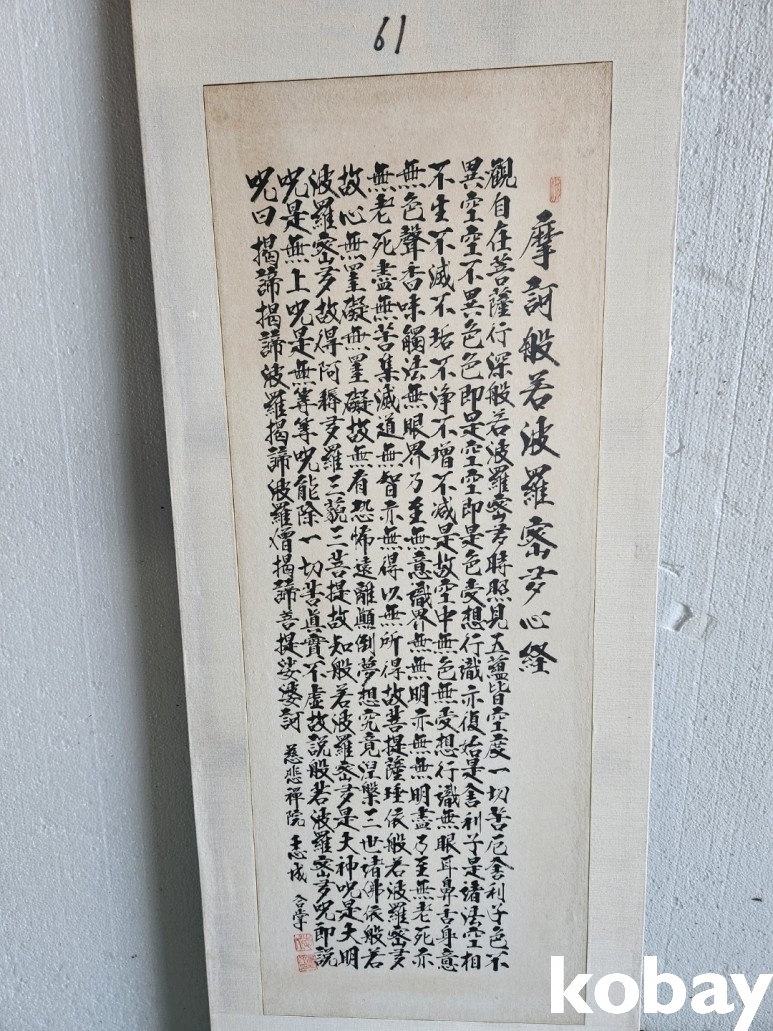 61
摩訶般若波羅密多心経
觀自在菩薩行深般若波羅密多時照見五蘊皆空度一切苦厄舍利子色不
異空空不異色色即是空空即是色受想行識亦復如是舍利子是諸法空相
不生不滅不垢不淨不增不減是故空中無色無受想行識無眼耳鼻舌身意
無色聲香味觸法無眼界乃至無意識界無無明亦無無明盡乃至無老死亦
無老死盡無苦集滅道無智亦無得以無所得故菩提薩埵依般若波羅密多
故心無罣礙無罣礙故無有恐怖遠離顛倒夢想究竟涅槃三世諸佛依般若
波羅密多故得阿耨多羅三藐三菩提故知般若波羅密多是大神呪是大明
呪是無上呪是無等等呪能除一切苦眞實不虛故說般若波羅密多呪即說
呪曰揭諦揭諦波羅揭諦波羅僧揭諦菩提娑婆訶 慈悲禪院 合掌
kobay